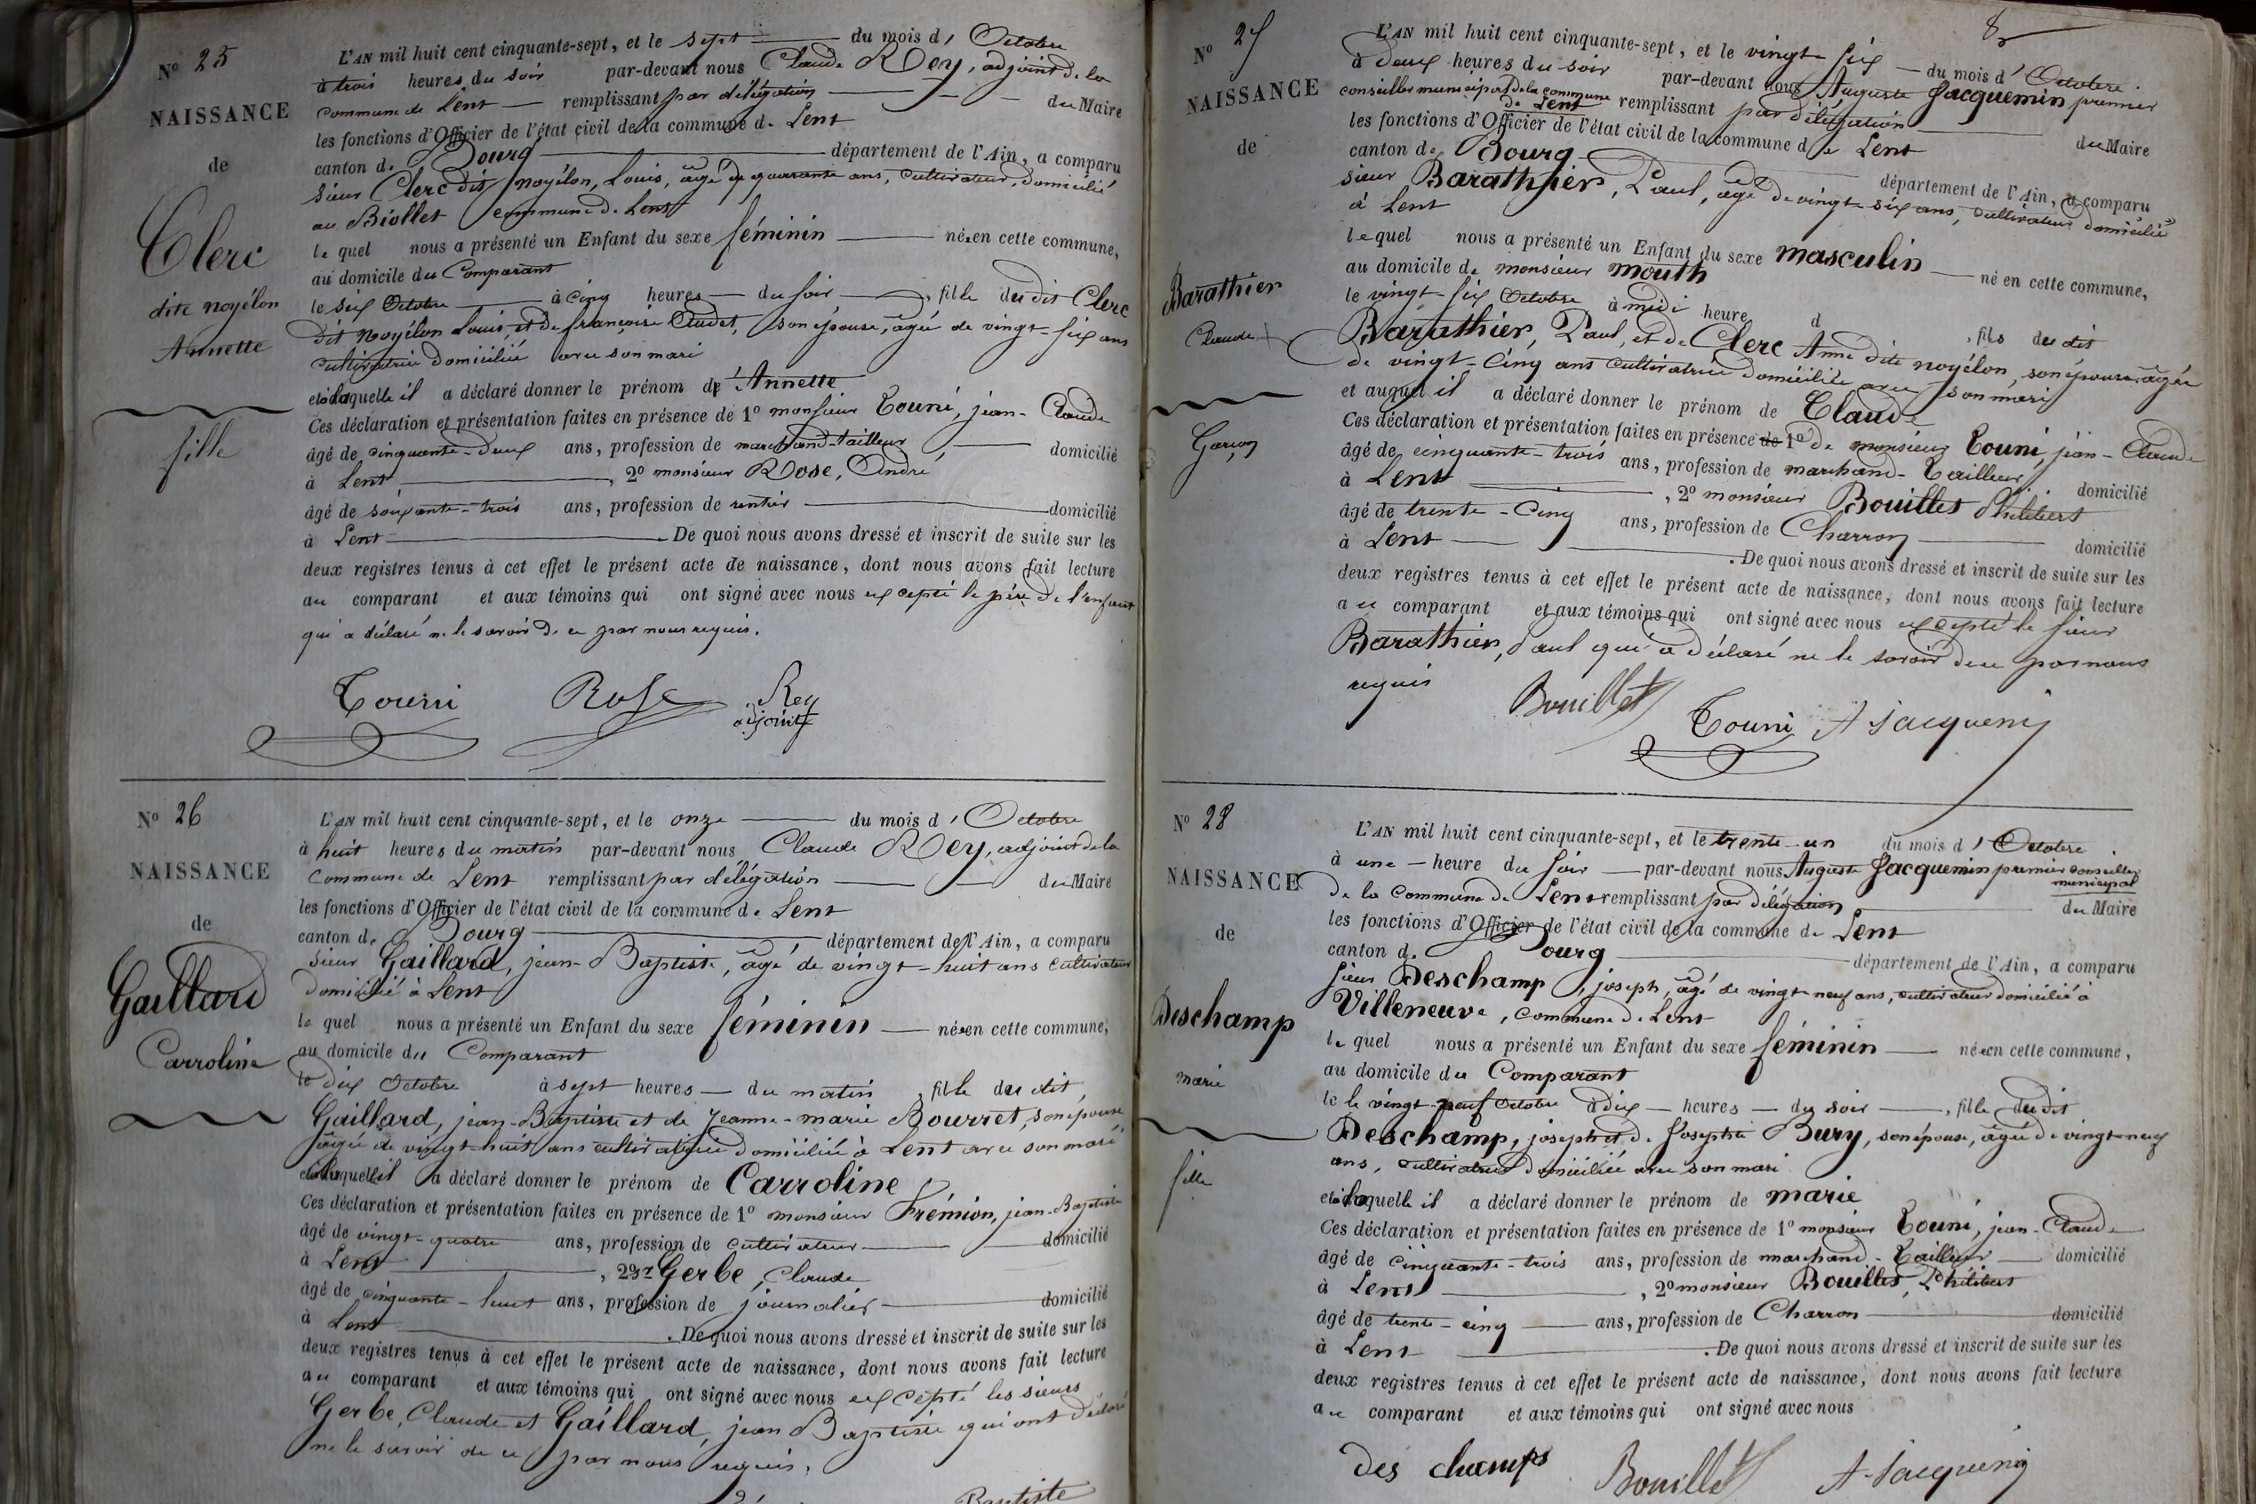 N° 25
NAISSANCE
de
Clerc
dite noyélon
Annette
fille
L'AN mil huit cent cinquante-sept, et le sept du mois d' Octobre
à trois heures du soir par-devant nous Claude Rey, adjoint de la
commune de Lent remplissant par délégation du Maire
les fonctions d'Officier de l'état civil de la commune de Lent
canton de Bourg département de l'Ain, a comparu
sieur Clerc dit noyélon, Louis, âgé de quarante ans, cultivateur, domicilié
au Biollet commune de Lent
le quel nous a présenté un Enfant du sexe féminin née en cette commune,
au domicile du Comparant
le six Octobre à cinq heures du soir, fille du dit Clerc
dit noyélon Louis, et de françoise Audet, son épouse, âgée de vingt-six ans
cultivatrice domiciliée avec son mari
et à laquelle il a déclaré donner le prénom de Annette
Ces déclaration et présentation faites en présence de 1° monsieur Touni, jean-Claude
âgé de cinquante-deux ans, profession de marchand-tailleur domicilié
à Lent, 2° monsieur Rose, André
âgé de soixante-trois ans, profession de rentier domicilié
à Lent. De quoi nous avons dressé et inscrit de suite sur les
deux registres tenus à cet effet le présent acte de naissance, dont nous avons fait lecture
au comparant et aux témoins qui ont signé avec nous excepté le père de l'enfant
qui a déclaré ne le savoir de ce par nous requis.
Touni Rose Rey
adjoint
N° 26
NAISSANCE
de
Gaillard
Carroline
L'AN mil huit cent cinquante-sept, et le onze du mois d' Octobre
à huit heures du matin par-devant nous Claude Rey, adjoint de la
commune de Lent remplissant par délégation du Maire
les fonctions d'Officier de l'état civil de la commune de Lent
canton de Bourg département de l'Ain, a comparu
sieur Gaillard, jean-Baptiste, âgé de vingt-huit ans cultivateur
domicilié à Lent
le quel nous a présenté un Enfant du sexe féminin née en cette commune,
au domicile du Comparant
le dix Octobre à sept heures du matin, fille du dit
Gaillard, jean-Baptiste et de Jeanne-marie Bourret, son épouse
âgée de vingt-huit ans cultivatrice domiciliée à Lent avec son mari
et à laquelle il a déclaré donner le prénom de Carroline
Ces déclaration et présentation faites en présence de 1° monsieur Frémion, jean-Baptiste
âgé de vingt-quatre ans, profession de cultivateur domicilié
à Lent, 2° sr Gerbe, Claude
âgé de cinquante-huit ans, profession de journalier domicilié
à Lent. De quoi nous avons dressé et inscrit de suite sur les
deux registres tenus à cet effet le présent acte de naissance, dont nous avons fait lecture
au comparant et aux témoins qui ont signé avec nous excepté les sieurs
Gerbe, Claude et Gaillard, jean Baptiste qui ont déclaré
ne le savoir de ce par nous requis.
Baptiste
8
N° 27
NAISSANCE
de
Barathier
Claude
Garçon
L'AN mil huit cent cinquante-sept, et le vingt-six du mois d' Octobre
à deux heures du soir par-devant nous Auguste Jacquemin, premier
conseiller municipal de la commune de Lent remplissant par délégation du Maire
les fonctions d'Officier de l'état civil de la commune de Lent
canton de Bourg département de l'Ain, a comparu
sieur Barathier, Paul, âgé de vingt-six ans, cultivateur domicilié
à Lent
le quel nous a présenté un Enfant du sexe masculin né en cette commune,
au domicile de monsieur mouth
le vingt-six Octobre à midi heure d, fils du dit
Barathier, Paul, et de Clerc Anne dite noyélon, son épouse, âgée
de vingt-cinq ans cultivatrice domiciliée avec son mari
et auquel il a déclaré donner le prénom de Claude
Ces déclaration et présentation faites en présence de 1° de monsieur Touni, jean-Claude
âgé de cinquante-trois ans, profession de marchand-Tailleur domicilié
à Lent, 2° monsieur Bouillet Philibert
âgé de trente-cinq ans, profession de Charron domicilié
à Lent. De quoi nous avons dressé et inscrit de suite sur les
deux registres tenus à cet effet le présent acte de naissance, dont nous avons fait lecture
au comparant et aux témoins qui ont signé avec nous excepté le sieur
Barathier, Paul qui a déclaré ne le savoir de ce par nous
requis
Bouillet Touni A Jacquemin
N° 28
NAISSANCE
de
Deschamp
marie
fille
L'AN mil huit cent cinquante-sept, et le trente-un du mois d' Octobre
à une heure du soir par-devant nous Auguste Jacquemin premier conseiller municipal
de la Commune de Lent remplissant par délégation du Maire
les fonctions d'Officier de l'état civil de la commune de Lent
canton de Bourg département de l'Ain, a comparu
sieur Deschamp, joseph, âgé de vingt-neuf ans, cultivateur domicilié à
Villeneuve, commune de Lent
le quel nous a présenté un Enfant du sexe féminin née en cette commune,
au domicile du Comparant
le le vingt-neuf Octobre à dix heures du soir, fille du dit
Deschamp, joseph et de Josephte Bury, son épouse, âgée de vingt-neuf
ans, cultivatrice domiciliée avec son mari
et à laquelle il a déclaré donner le prénom de marie
Ces déclaration et présentation faites en présence de 1° monsieur Touni, jean-Claude
âgé de cinquante-trois ans, profession de marchand-Tailleur domicilié
à Lent, 2° monsieur Bouillet, Philibert
âgé de trente-cinq ans, profession de Charron domicilié
à Lent. De quoi nous avons dressé et inscrit de suite sur les
deux registres tenus à cet effet le présent acte de naissance, dont nous avons fait lecture
au comparant et aux témoins qui ont signé avec nous
des champs Bouillet A Jacquemin